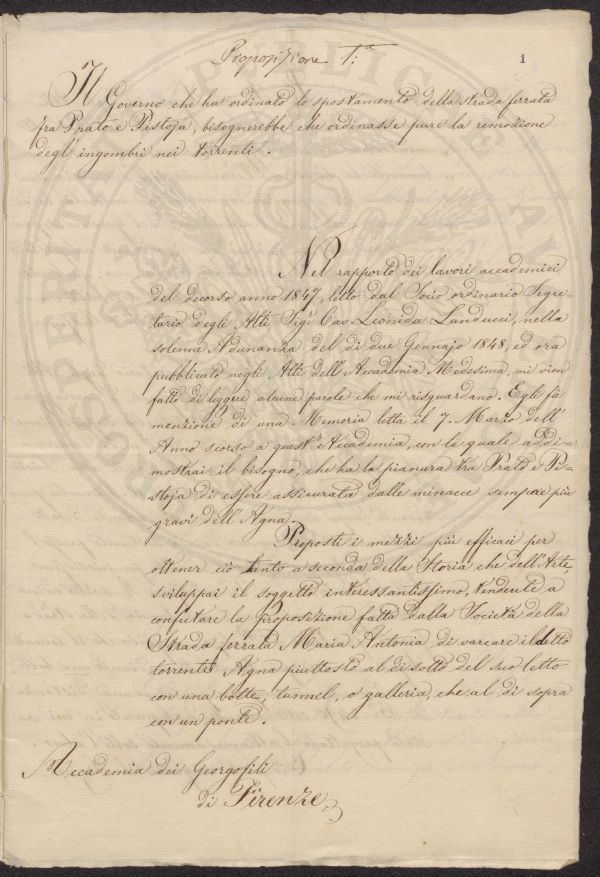 Proposizione 1:a
1
Il Governo che ha ordinato lo spostamento della strada ferrata
fra Prato e Pistoja, bisognerebbe che ordinasse pure la remozione
degl'ingombri nei torrenti.
Nel rapporto dei lavori accademici
del decorso anno 1847, letto dal Socio ordinario Segre-
tario degli Atti Sigr. Cav. Leonida Landucci, nella
solenne Adunanza del di due Gennajo 1848, ed ora
pubblicato negli Atti dell'Accademia Medesima, mi vien
fatto di leggere alcune parole che mi risguardano. Egli fà
menzione di una Memoria letta il 7. Marzo dell'
Anno scorso a quest'Accademia, con la quale addi-
mostrai il bisogno, che ha la pianura tra Prato e Pi-
stoja di essere assicurata dalle minacce sempre più
gravi dell'Agna.
Proposti i mezzi più efficaci per
ottener ciò tanto a seconda della Storia che dell'Arte,
sviluppai il soggetto interessantissimo, tendente a
confutare la proposizione fatta dalla Società della
Strada ferrata Maria Antonia di varcare il detto
torrente Agna piuttosto al di sotto del suo letto
con una botte, tunnel, o galleria, che al di sopra
con un ponte.
Accademia dei Georgofili
di Firenze